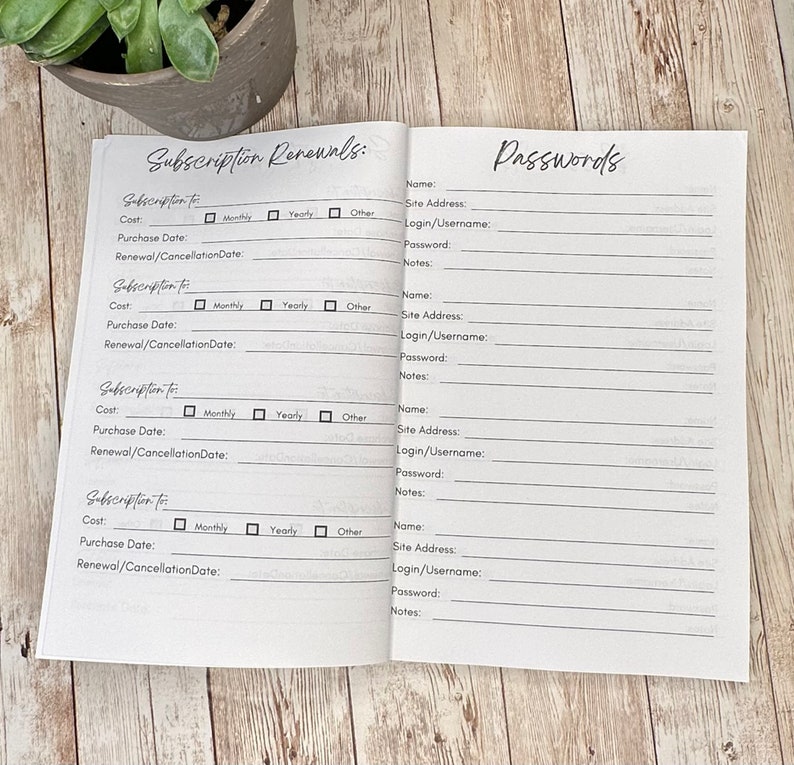 Subscription Renewals:
Subscription to:
Cost: Monthly Yearly Other
Purchase Date:
Renewal/CancellationDate:
Subscription to:
Cost: Monthly Yearly Other
Purchase Date:
Renewal/CancellationDate:
Subscription to:
Cost: Monthly Yearly Other
Purchase Date:
Renewal/CancellationDate:
Subscription to:
Cost: Monthly Yearly Other
Purchase Date:
Renewal/CancellationDate:
Passwords
Name:
Site Address:
Login/Username:
Password:
Notes:
Name:
Site Address:
Login/Username:
Password:
Notes:
Name:
Site Address:
Login/Username:
Password:
Notes:
Name:
Site Address:
Login/Username:
Password:
Notes: